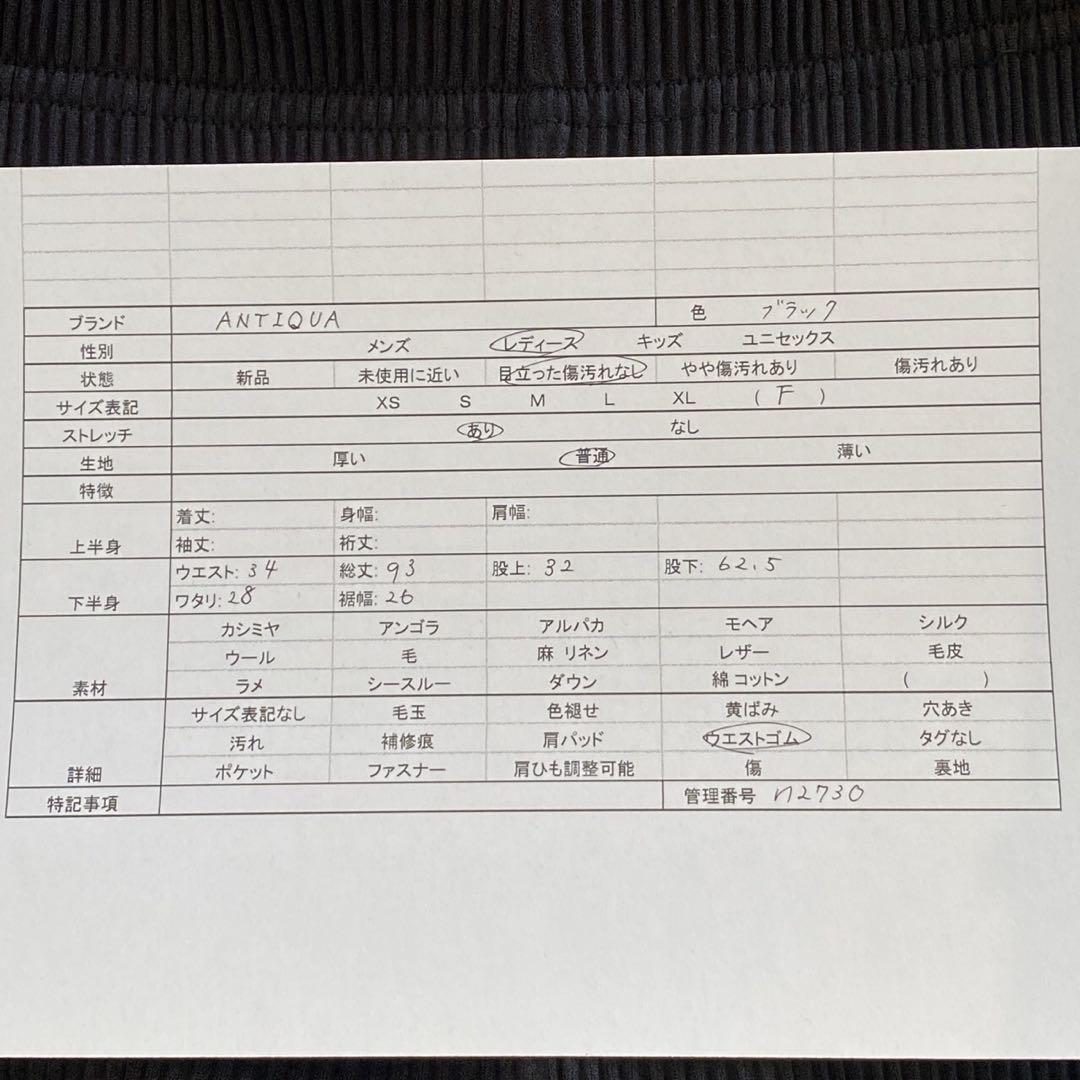 ブランド ANTIQUA 色 ブラック
性別 メンズ レディース キッズ ユニセックス
状態 新品 未使用に近い 目立った傷汚れなし やや傷汚れあり 傷汚れあり
サイズ表記 XS S M L XL ( F )
ストレッチ あり なし
生地 厚い 普通 薄い
特徴
上半身 着丈: 身幅: 肩幅:
袖丈: 裄丈:
下半身 ウエスト: 34 総丈: 93 股上: 32 股下: 62.5
ワタリ: 28 裾幅: 26
素材 カシミヤ アンゴラ アルパカ モヘア シルク
ウール 毛 麻 リネン レザー 毛皮
ラメ シースルー ダウン 綿 コットン ( )
詳細 サイズ表記なし 毛玉 色褪せ 黄ばみ 穴あき
汚れ 補修痕 肩パッド ウエストゴム タグなし
ポケット ファスナー 肩ひも調整可能 傷 裏地
特記事項 管理番号 n2730